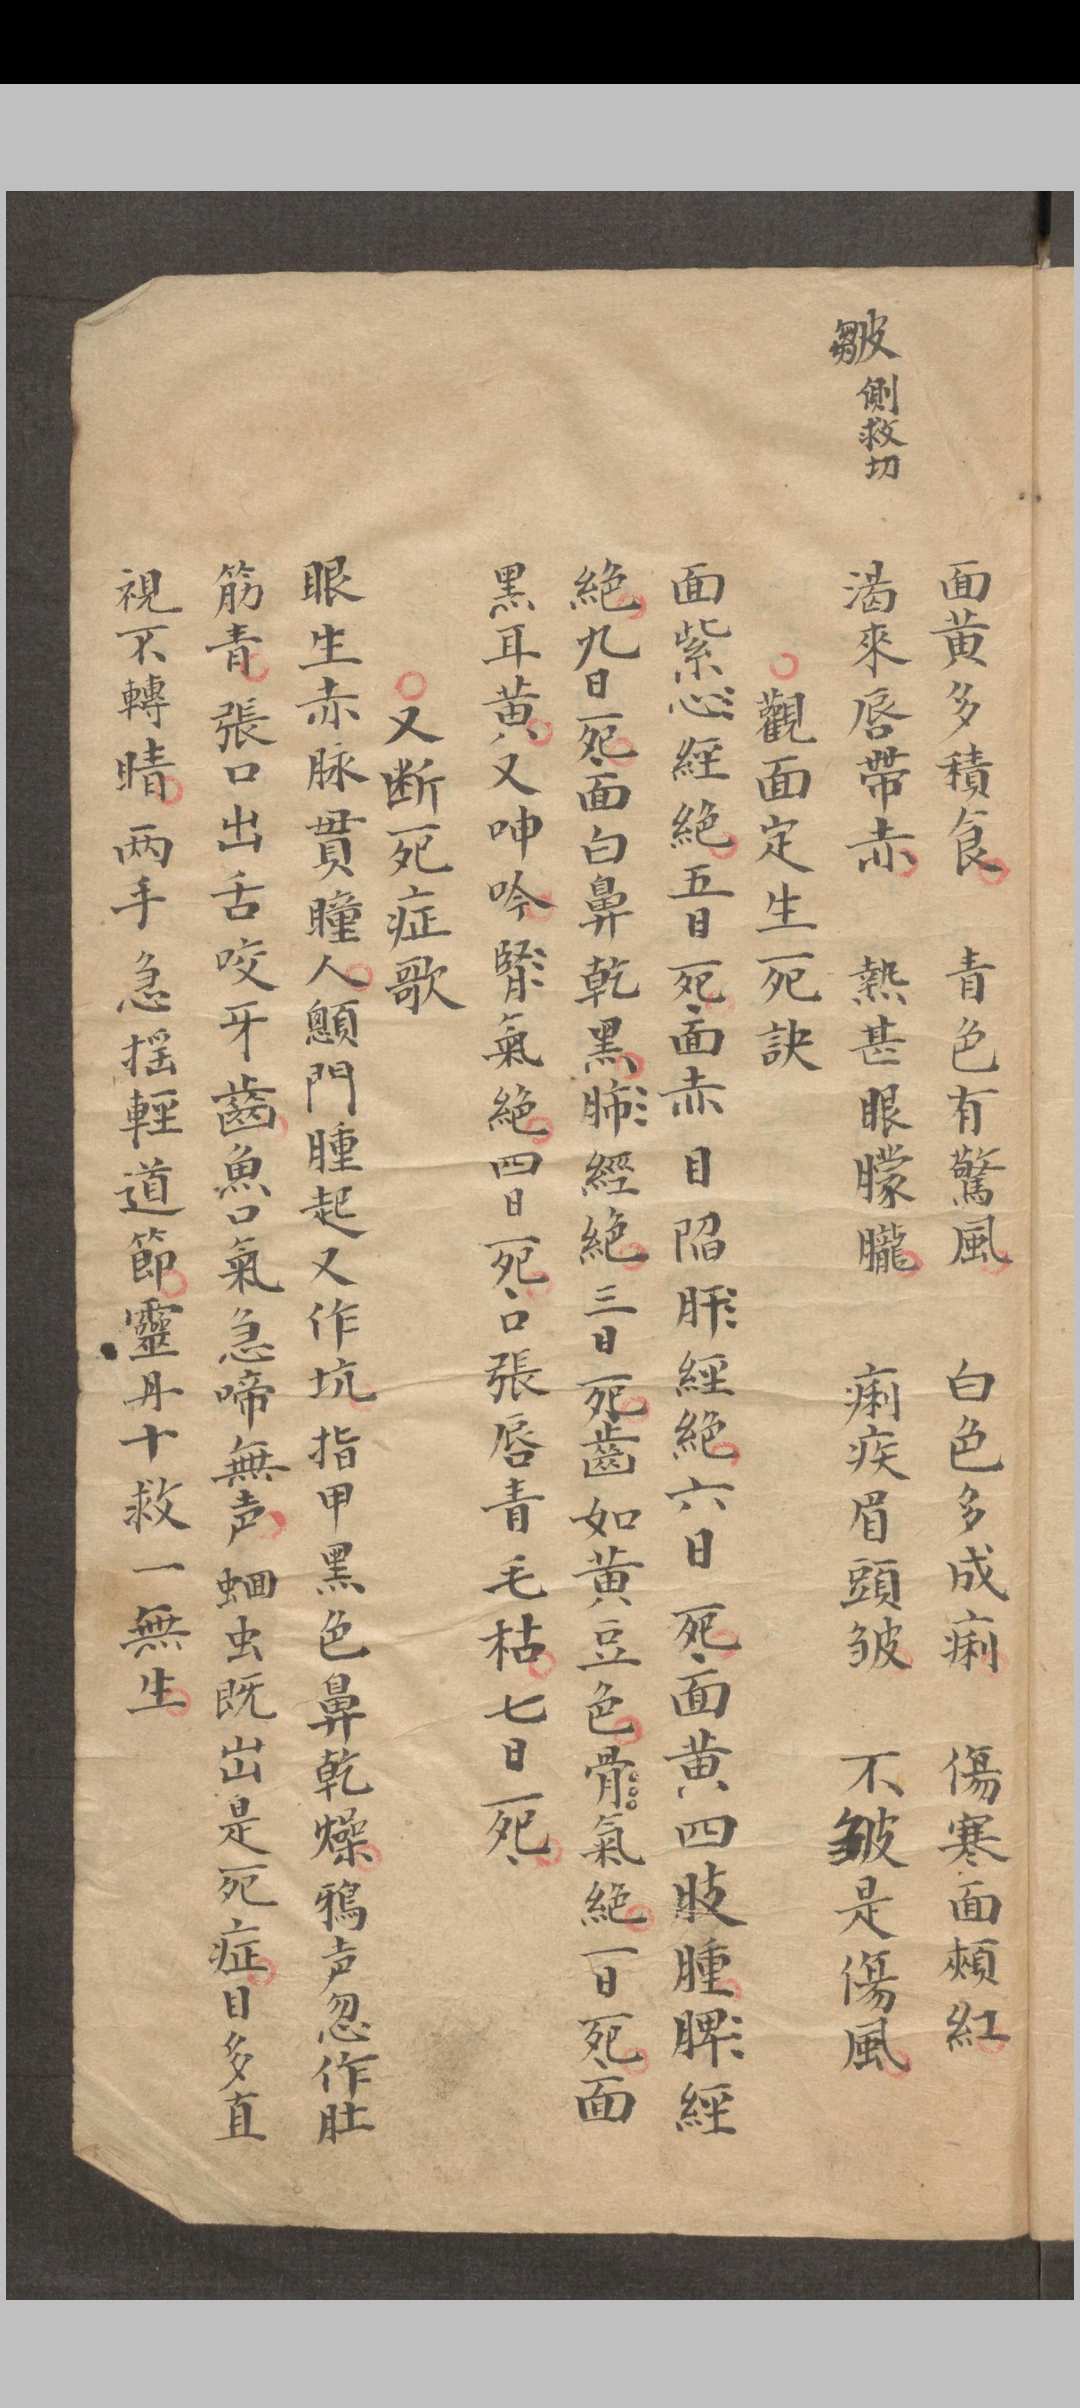 面黄多積食 青色有驚風 白色多成痢 傷寒面頰紅
皺 側救切
渴來唇帶赤 熱甚眼朦朧 痢疾眉頭皱 不皱是傷風
觀面定生死訣
面紫心經絕五日死面赤目陷肝經絕六日死面黄四肢腫脾經
絕九日死面白鼻乾黑肺經絕三日死齒如黄豆色骨氣絕一日死面
黑耳黄又呻吟腎氣絕四日死口張唇青毛枯七日死
又断死症歌
眼生赤脉貫瞳人顖門腫起又作坑指甲黑色鼻乾燥鴉声忽作肚
筋青張口出舌咬牙齒魚口氣急啼無声蛔虫既出是死症目多直
視不轉睛两手急揺輕道節靈丹十救一無生